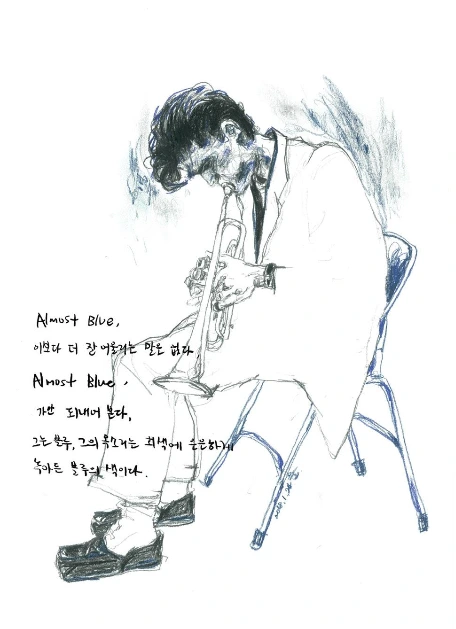 Almost Blue,
이보다 더 잘 어울리는 말은 없다,
Almost Blue,
가만 되내어 본다,
그는 블루, 그의 목소리는 회색에 은은하게
녹아든 블루의 색이다.